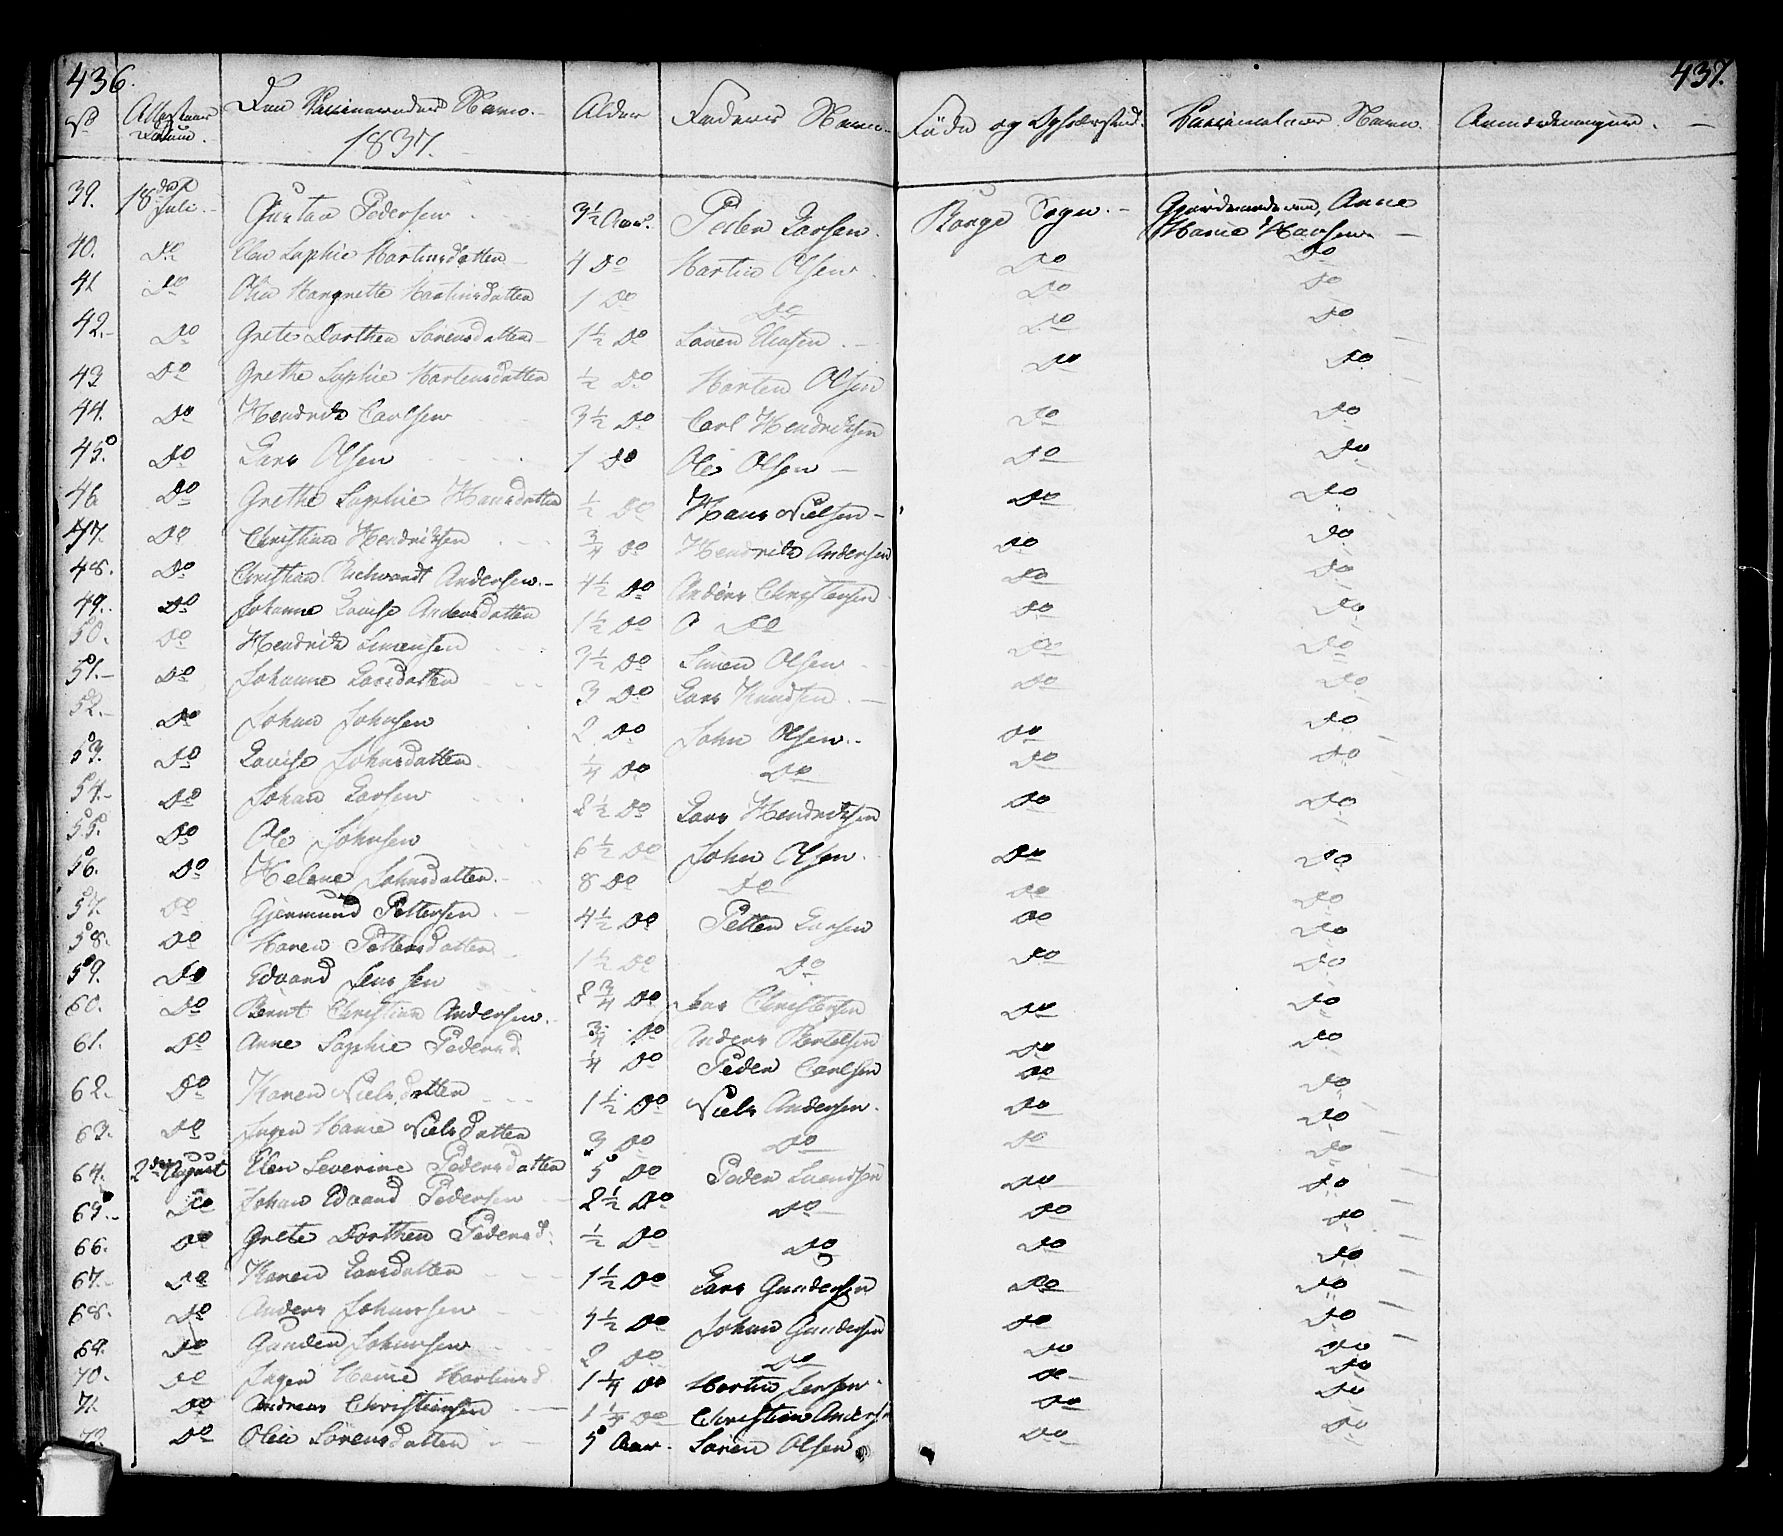 436. 437.
No Attestens Datum. Den Vaccineredes Navn. Alder Faders Navn. Føde og Opholdssted. Vaccinateur Navn. Anmærkninger.
1837.
39. 18de Juli. Gustav Pedersen 3 1/2 Aar. Peder Larsen. Borge Sogn. Gjordemoderen, Anne
Marie Hansen
40. Do Elen Sophie Martinsdatter 4 Do Martin Olsen Do Do
41 Do Olia Margrette Martinsdatter 1 Do Do Do Do
42. Do Grete Dorthea Sörensdatter 1 1/2 Do Sören Do Do
43 Do Grethe Sophie Martensdatter 1/2 Do Morten Olsen Do Do
44. Do Hendrik Carlsen 3 1/2 Do Carl Hendriksen Do Do
45. Do Lars Olsen 1 Do Ole Olsen Do Do
46 Do Grethe Sophie Hansdatter 1/2 Do Hans Nielsen Do Do
47. Do Christian Hendriksen 3/4 Do Hendrik Andersen Do Do
48. Do Christian Andersen 4 1/2 Do Anders Christensen Do Do
49. Do Johanne Lovise Andersdatter 1 1/2 Do Do Do Do
50. Do Hendrik Simensen 3 1/2 Do Simen Olsen Do Do
51. Do Johanne Larsdatter 3 Do Lars Knudsen Do Do
52. Do Johan Johnsen 2 Do John Olsen Do Do
53. Do Lovise Johnsdatter 1/4 Do Do Do Do
54. Do Johan Larsen 2 1/2 Do Lars Hendriksen Do Do
55. Do Ole Johnsen 6 1/2 Do John Olsen Do Do
56. Do Helene Johnsdatter. 8 Do Do Do Do
57. Do Gjermund Pettersen 4 1/2 Do Petter Larsen Do Do
58. Do Maren Pettersdatter 1 1/2 Do Do Do Do
59. Do Edvard Jenssen 2 3/4 Do Jens Christensen Do Do
60. Do Bernt Christian Andersen. 3/4 Do Anders Bertelsen Do Do
61. Do Anne Sophie Pedersd. 1/4 Do Peder Carlsen Do Do
62. Do Karen Nielsdatter 1 1/2 Do Niels Andersen. Do Do
63. Do Inger Marie Nielsdatter 3 Do Do Do Do
64. 2den August Elen Severine Pedersdatter 5 Do Peder Svendsen Do Do
65. Do Johan Edvard Pedersen 2 1/2 Do Do Do Do
66. Do Grete Dorthea Pedersd. 1/2 Do Do Do Do
67. Do Karen Larsdatter 1 1/2 Do Lars Gundersen Do Do
68. Do Anders Johansen 4 1/2 Do Johan Gundersen Do Do
69. Do Gunder Johansen 2 Do Do Do Do
70. Do Inger Marie Martinsd 1 1/4 Do Martin Jensen Do Do
71. Do Andreas Christiansen 1 1/4 Do Christian Anders Do Do
72. Do Olia Sörensdatter 5 Aar. Sören Olsen Do Do